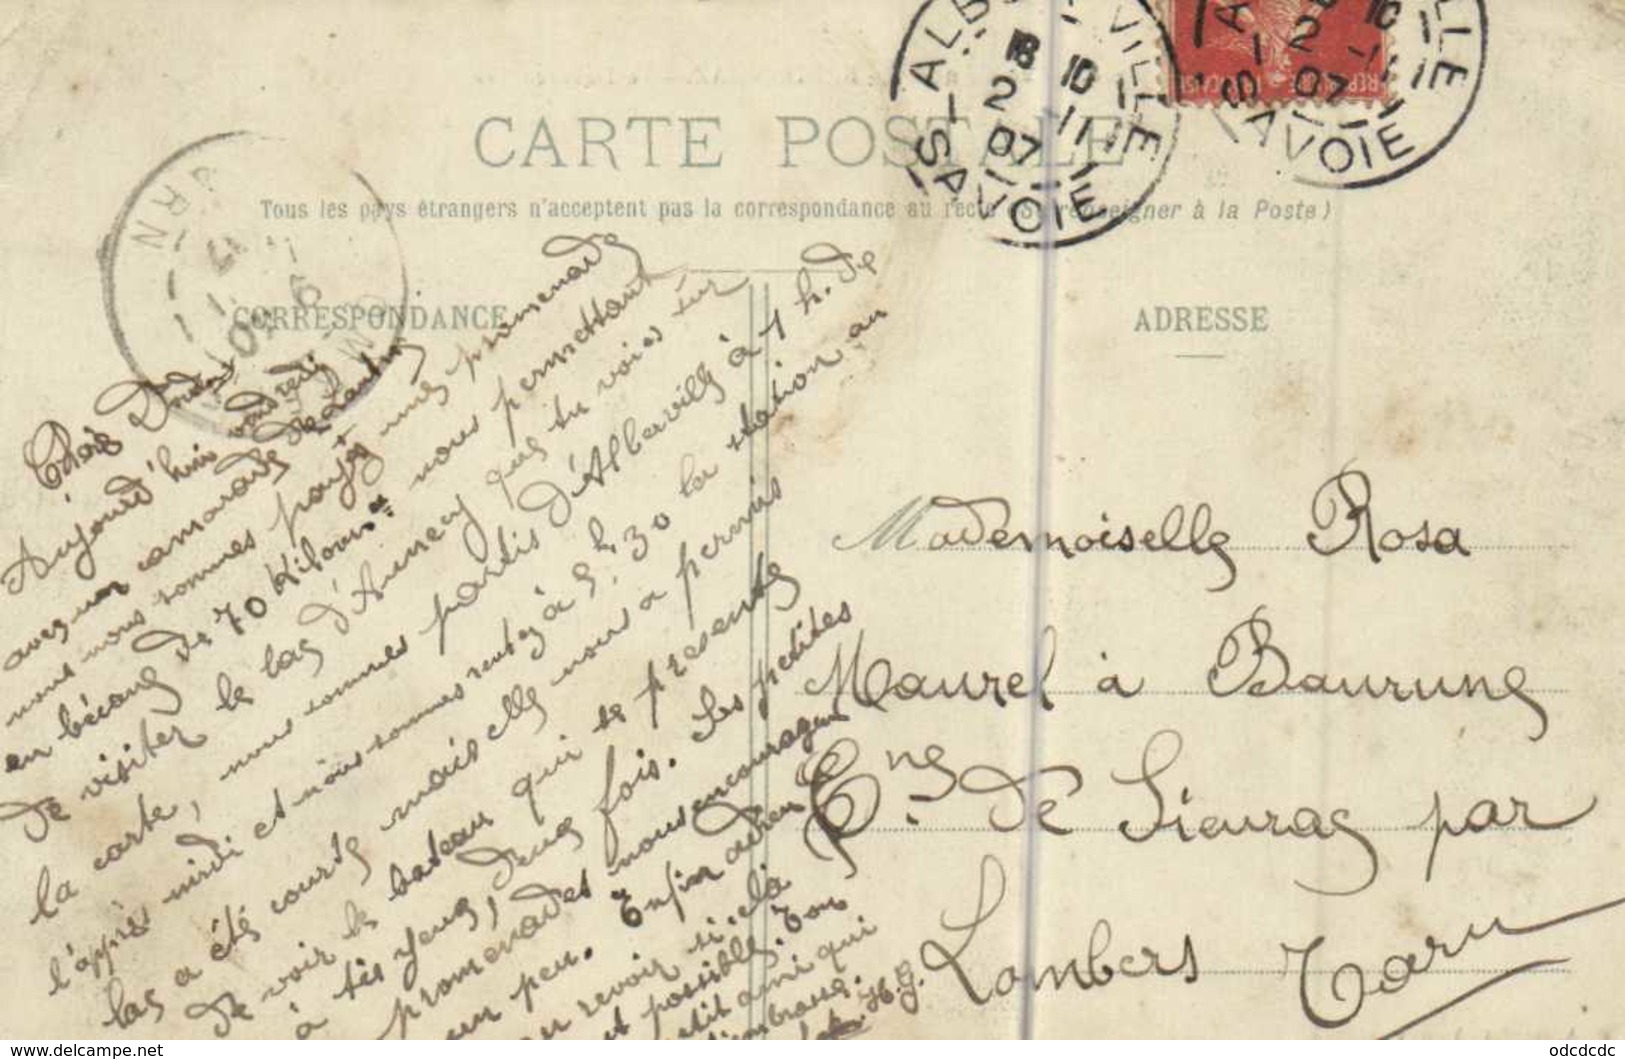 ALB VILLE
18 10
2 11
07
SAVOIE
A VILLE
2 10
07
SAVOIE
CARTE POSTALE
Tous les pays étrangers n'acceptent pas la correspondance au recto (Se renseigner à la Poste)
CORRESPONDANCE
ADRESSE
TARN
Chère
Aujourd'hui vendredi
avec un camarade de
nous nous sommes payés une promenade
en bécane de 70 kilom. nous permettant
de visiter le lac d'Annecy que tu vois sur
la carte, nous sommes partis d'Albertville à 1 h. de
l'après midi et nous sommes restés à 5 h. 30 la station au
lac a été courte mais elle nous a permis
de voir le bateau qui se présente
à tes yeux, deux fois. Les petites
promenades nous encouragent
un peu. Enfin adieu
revoir si
possible. Ton
petit ami qui
t'embrasse.
H. G.
Mademoiselle Rosa
Maurel à Baurung
Cne de Sieurac par
Lombers Tarn
odcdcdc
delcampe.net